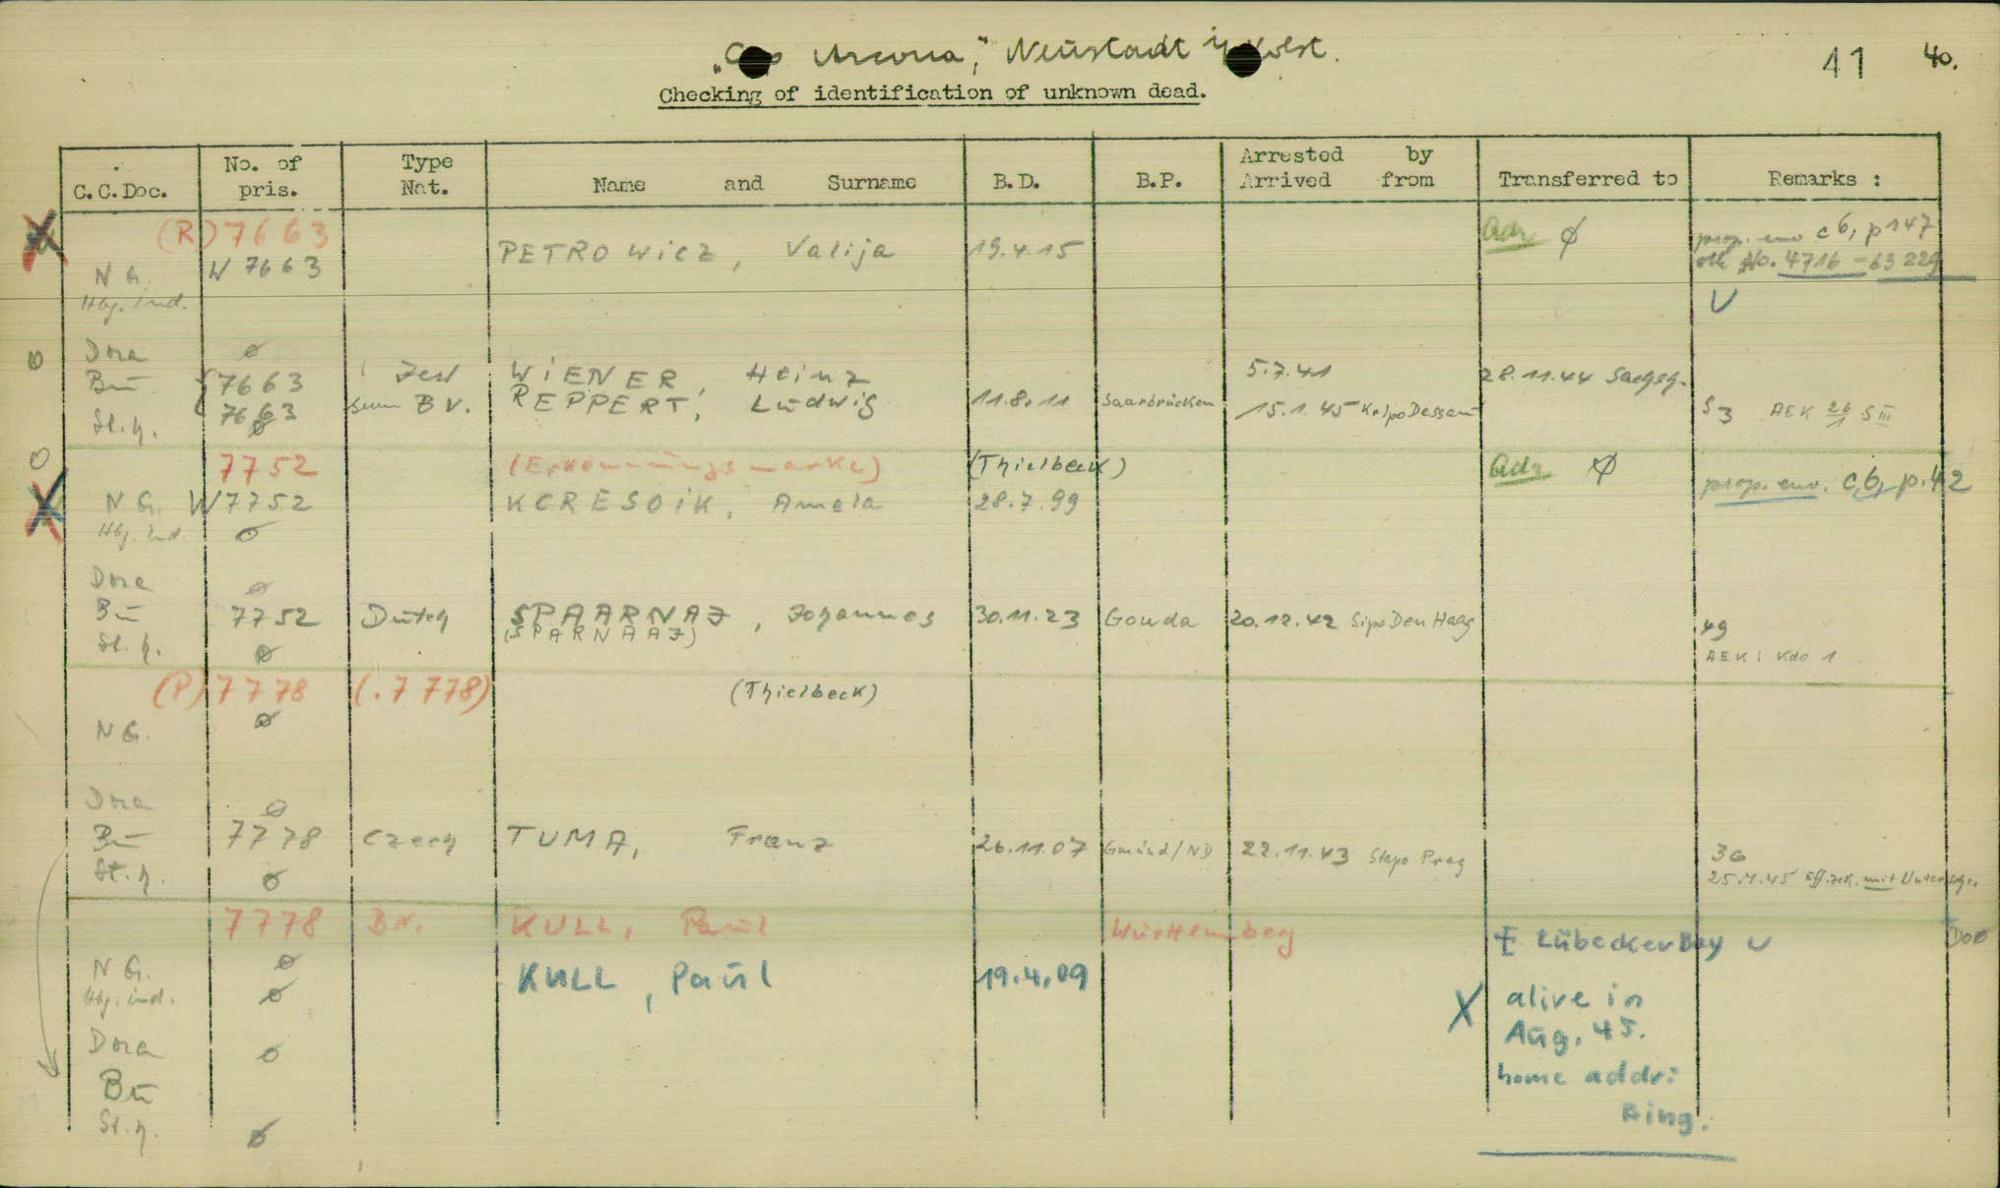 "Cap Arcona", Neustadt i. Holst.
41 40.
Checking of identification of unknown dead.
C.C.Doc. No. of pris. Type Nat. Name and Surname B.D. B.P. Arrested by Arrived from Transferred to Remarks :
(R) 7663 Adr Ø prop. env c6, p147
N G. W 7663 PETROWicz, Valija 19.4.15 No. 4716 - 63229
Hbg. ind. v
Dora ø
Bu 7663 Jew WiENER, Heinz 5.7.41 28.11.44 Sachsh.
7663 BV. REPPERT, Ludwig 11.8.11 Saarbrücken 15.1.45 Kripo Dessau 53 AEK 26/1 5 III
St.h. ø
7752 (Erkennungsmarke) (Thielbeck) Adr Ø prop. env. c6, p.42
N G. W7752 KCRESOiK, Amela 28.7.99
Hbg. ind. ø
Dora ø
Bu 7752 Dutch SPAARNAJ, Johannes 30.11.23 Gouda 20.12.42 Sipo Den Haag 49
(SPARNAAJ)
St.h. ø AEK: Kdo 1
(P) 7778 (.7778) (Thielbeck)
N G. ø
Dora ø
Bu 7778 Czech TUMA, Franz 26.11.07 Gmünd/ND 22.11.43 Stapo Prag 36
St.h. ø 25.4.45 Eff.zk. mit Unterschr.
7778 BV. KULL, Paul Württemberg E Lübecker Bay v Doe
N G. ø KULL, Paul 19.4.09
Hbg. ind. ø X alive in
Aug. 45.
Dora ø
Bu home addr:
St.h. ø Bing.